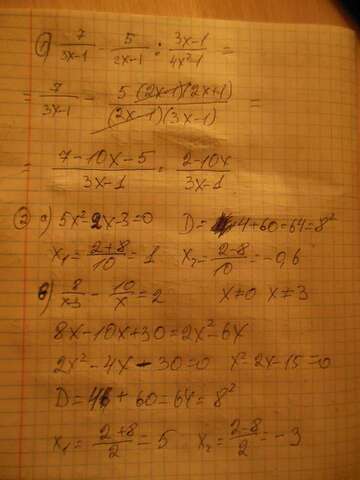 ① 7/(3x-1) - 5/(2x-1) : (3x-1)/(4x²-1) =
= 7/(3x-1) - 5(2x-1)(2x+1)/(2x-1)(3x-1) =
= (7-10x-5)/(3x-1) = (2-10x)/(3x-1)
② a) 5x² 2x-3=0 D= 4+60=64=8²
x₁= (2+8)/10 = 1 x₂= (2-8)/10 = -0,6
б) 8/(x-3) - 10/x = 2 x≠0 x≠3
8x-10x+30=2x²-6x
2x²-4x-30=0 x²-2x-15=0
D=4+60=64=8²
x₁= (2+8)/2 = 5 x₂= (2-8)/2 = -3